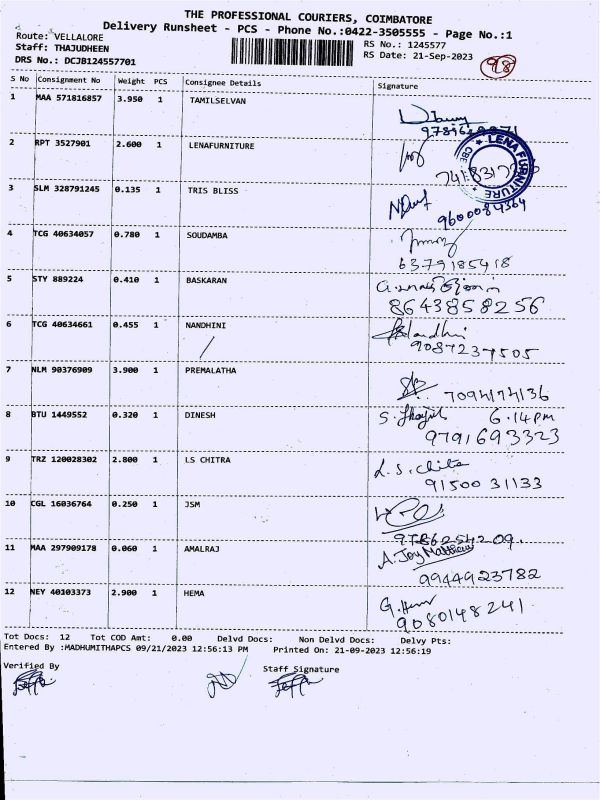 THE PROFESSIONAL COURIERS, COIMBATORE
Delivery Runsheet - PCS - Phone No.:0422-3505555 - Page No.:1
Route: VELLALORE
Staff: THAJUDHEEN
DRS No.: DCJB124557701
RS No.: 1245577
RS Date: 21-Sep-2023
98
S No Consignment No Weight PCS Consignee Details Signature
1 MAA 571816857 3.950 1 TAMILSELVAN
2 RPT 3527901 2.600 1 LENAFURNITURE
LENA FURNITURE
CBE
3 SLM 328791245 0.135 1 TRIS BLISS
9600084364
4 TCG 40634057 0.780 1 SOUDAMBA
6379185418
5 STY 889224 0.410 1 BASKARAN
8643858256
6 TCG 40634661 0.455 1 NANDHINI
Nandhini
9087237505
7 NLM 90376909 3.900 1 PREMALATHA
7094174136
8 BTU 1449552 0.320 1 DINESH
6.14pm
9791693323
9 TRZ 120028302 2.800 1 LS CHITRA
L.S. Chitra
91500 31133
10 CGL 16036764 0.250 1 JSM
9786254209.
11 MAA 297909178 0.060 1 AMALRAJ
A. Joy Matthew
9944923782
12 NEY 40103373 2.900 1 HEMA
G. Hema
9080148241
Tot Docs: 12 Tot COD Amt: 0.00 Delvd Docs: Non Delvd Docs: Delvy Pts:
Entered By :MADHUMITHAPCS 09/21/2023 12:56:13 PM Printed On: 21-09-2023 12:56:19
Verified By Staff Signature